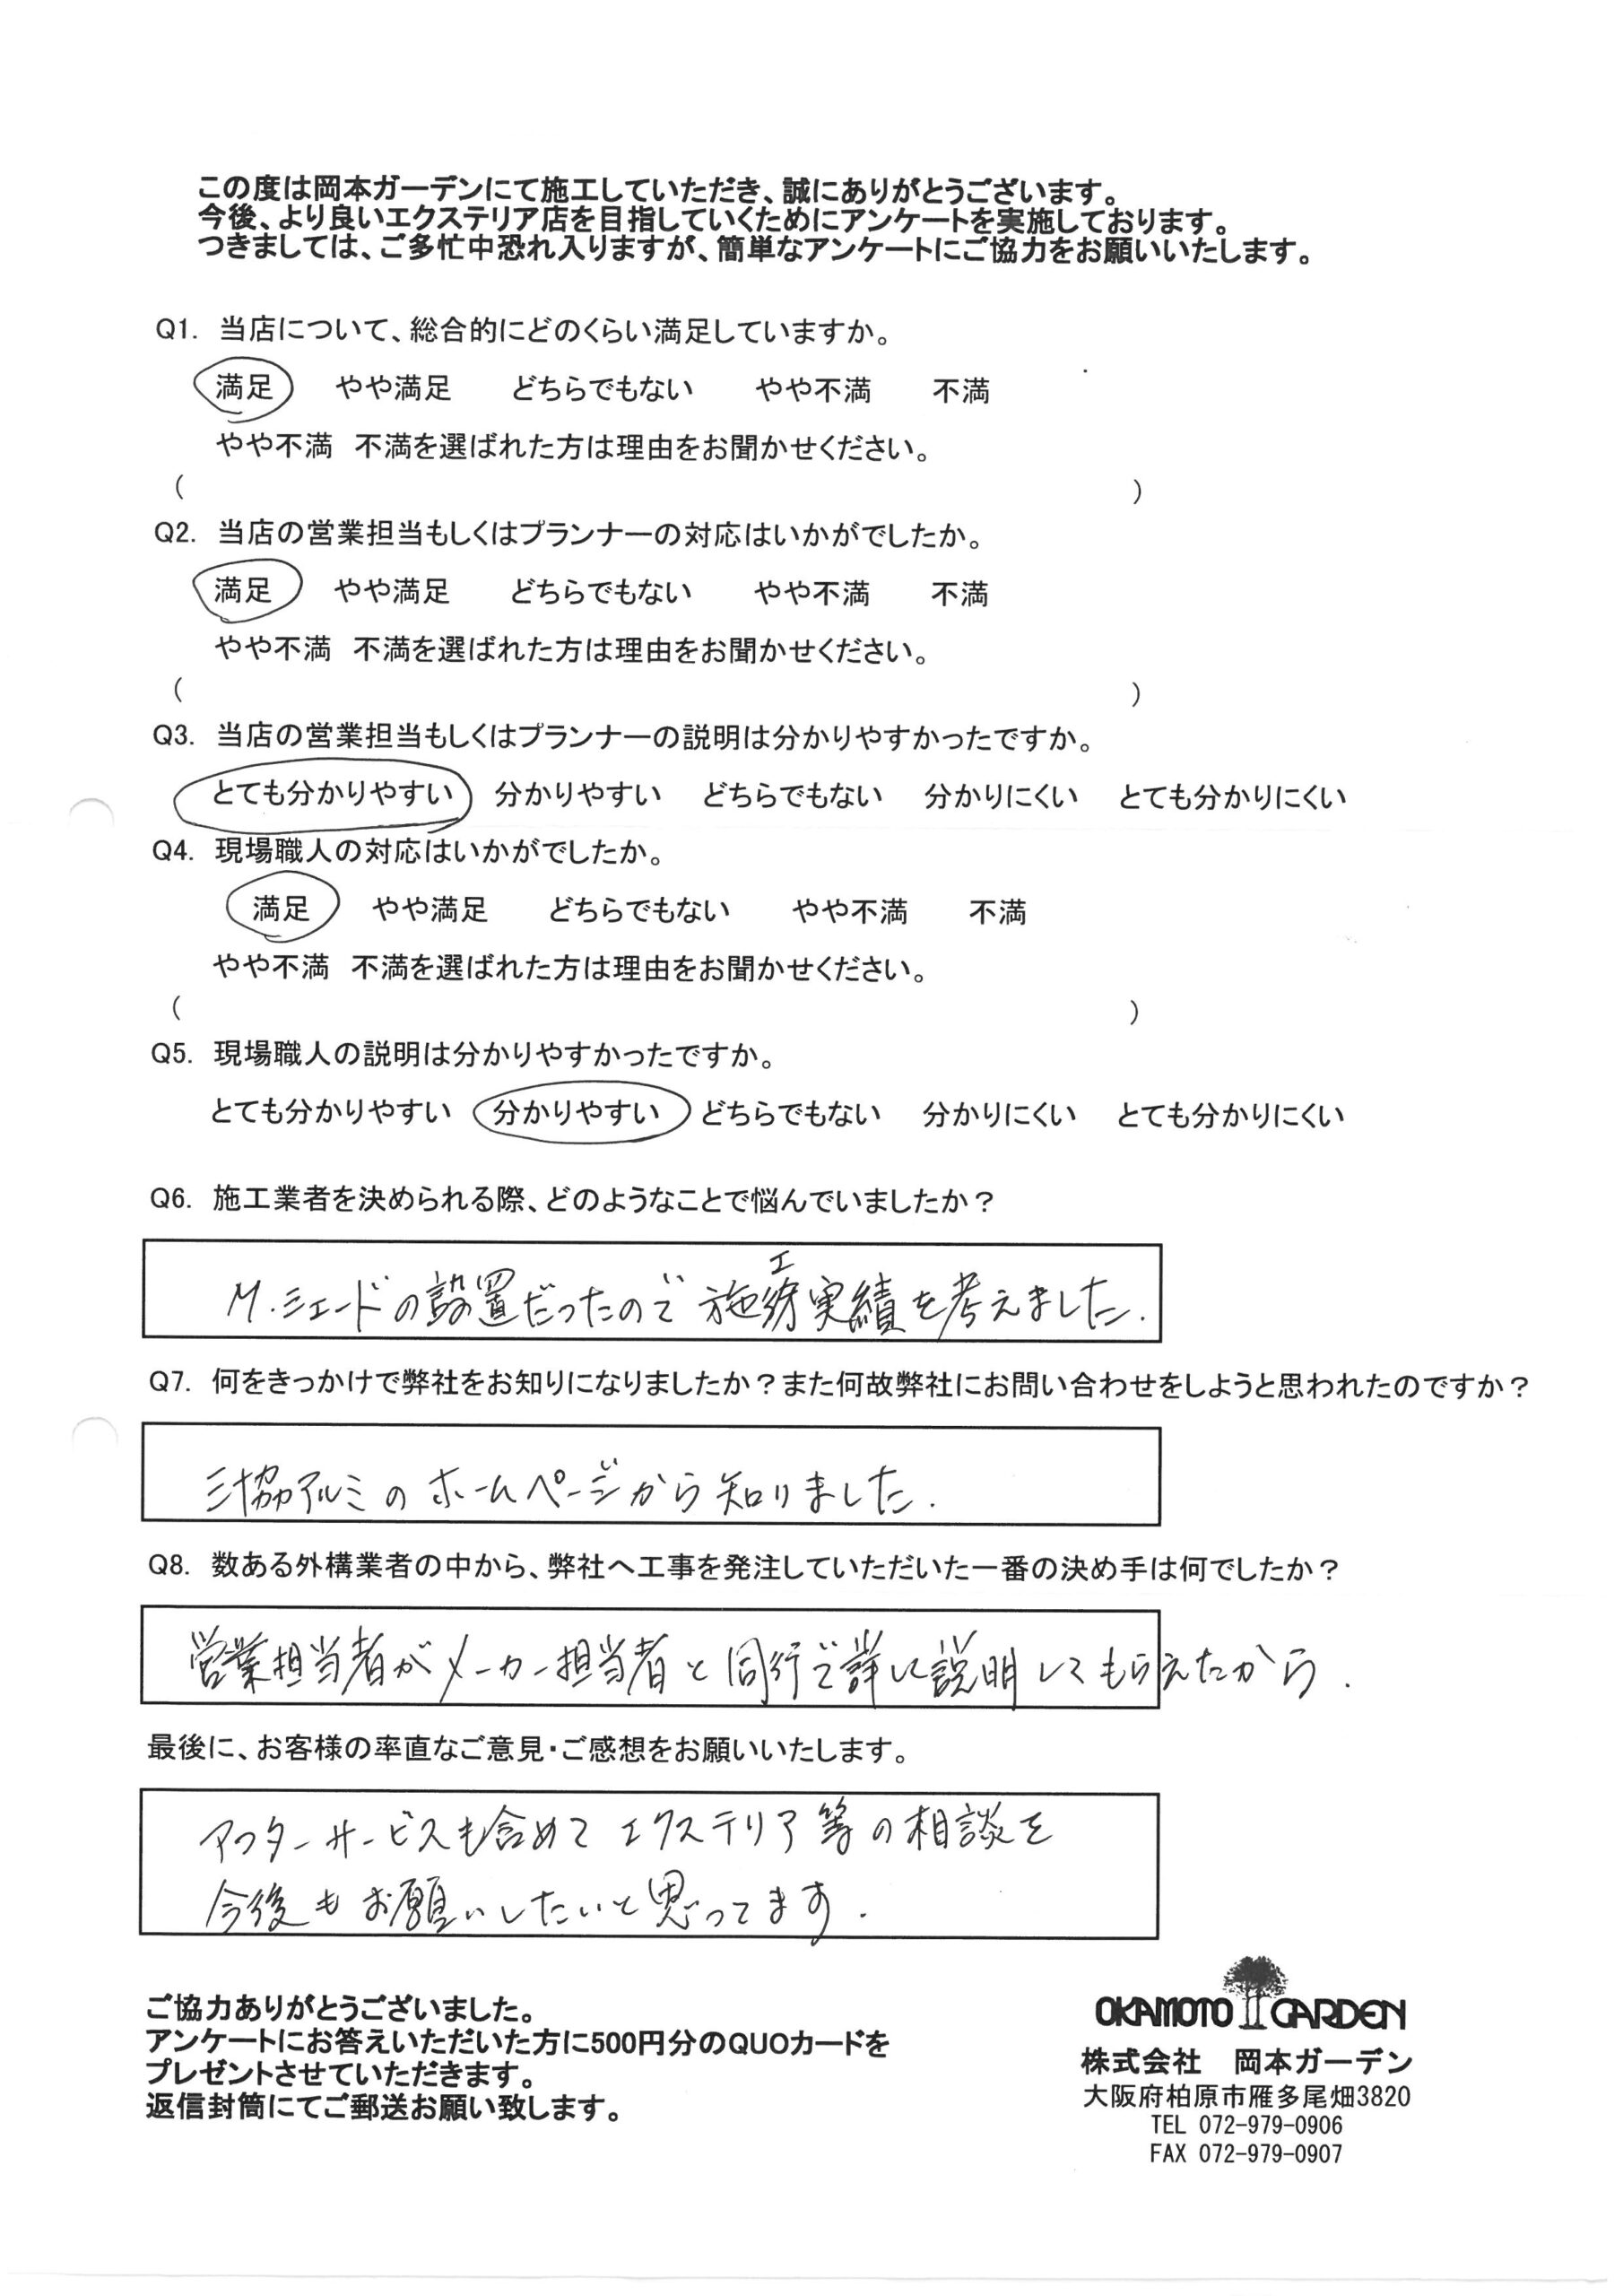 この度は岡本ガーデンにて施工していただき、誠にありがとうございます。
今後、より良いエクステリア店を目指していくためにアンケートを実施しております。
つきましては、ご多忙中恐れ入りますが、簡単なアンケートにご協力をお願いいたします。
Q1. 当店について、総合的にどのくらい満足していますか。
満足 やや満足 どちらでもない やや不満 不満
やや不満 不満を選ばれた方は理由をお聞かせください。
( )
Q2. 当店の営業担当もしくはプランナーの対応はいかがでしたか。
満足 やや満足 どちらでもない やや不満 不満
やや不満 不満を選ばれた方は理由をお聞かせください。
( )
Q3. 当店の営業担当もしくはプランナーの説明は分かりやすかったですか。
とても分かりやすい 分かりやすい どちらでもない 分かりにくい とても分かりにくい
Q4. 現場職人の対応はいかがでしたか。
満足 やや満足 どちらでもない やや不満 不満
やや不満 不満を選ばれた方は理由をお聞かせください。
( )
Q5. 現場職人の説明は分かりやすかったですか。
とても分かりやすい 分かりやすい どちらでもない 分かりにくい とても分かりにくい
Q6. 施工業者を決められる際、どのようなことで悩んでいましたか？
M.シェードの設置だったので施工実績を考えました.
Q7. 何をきっかけで弊社をお知りになりましたか？また何故弊社にお問い合わせをしようと思われたのですか？
三協アルミのホームページから知りました.
Q8. 数ある外構業者の中から、弊社へ工事を発注していただいた一番の決め手は何でしたか？
営業担当者がメーカー担当者と同行で詳しく説明してもらえたから.
最後に、お客様の率直なご意見・ご感想をお願いいたします。
アフターサービスも含めてエクステリア等の相談を
今後もお願いしたいと思ってます.
ご協力ありがとうございました。
アンケートにお答えいただいた方に500円分のQUOカードを
プレゼントさせていただきます。
返信封筒にてご郵送お願い致します。
OKAMOTO GARDEN
株式会社 岡本ガーデン
大阪府柏原市雁多尾畑3820
TEL 072-979-0906
FAX 072-979-0907